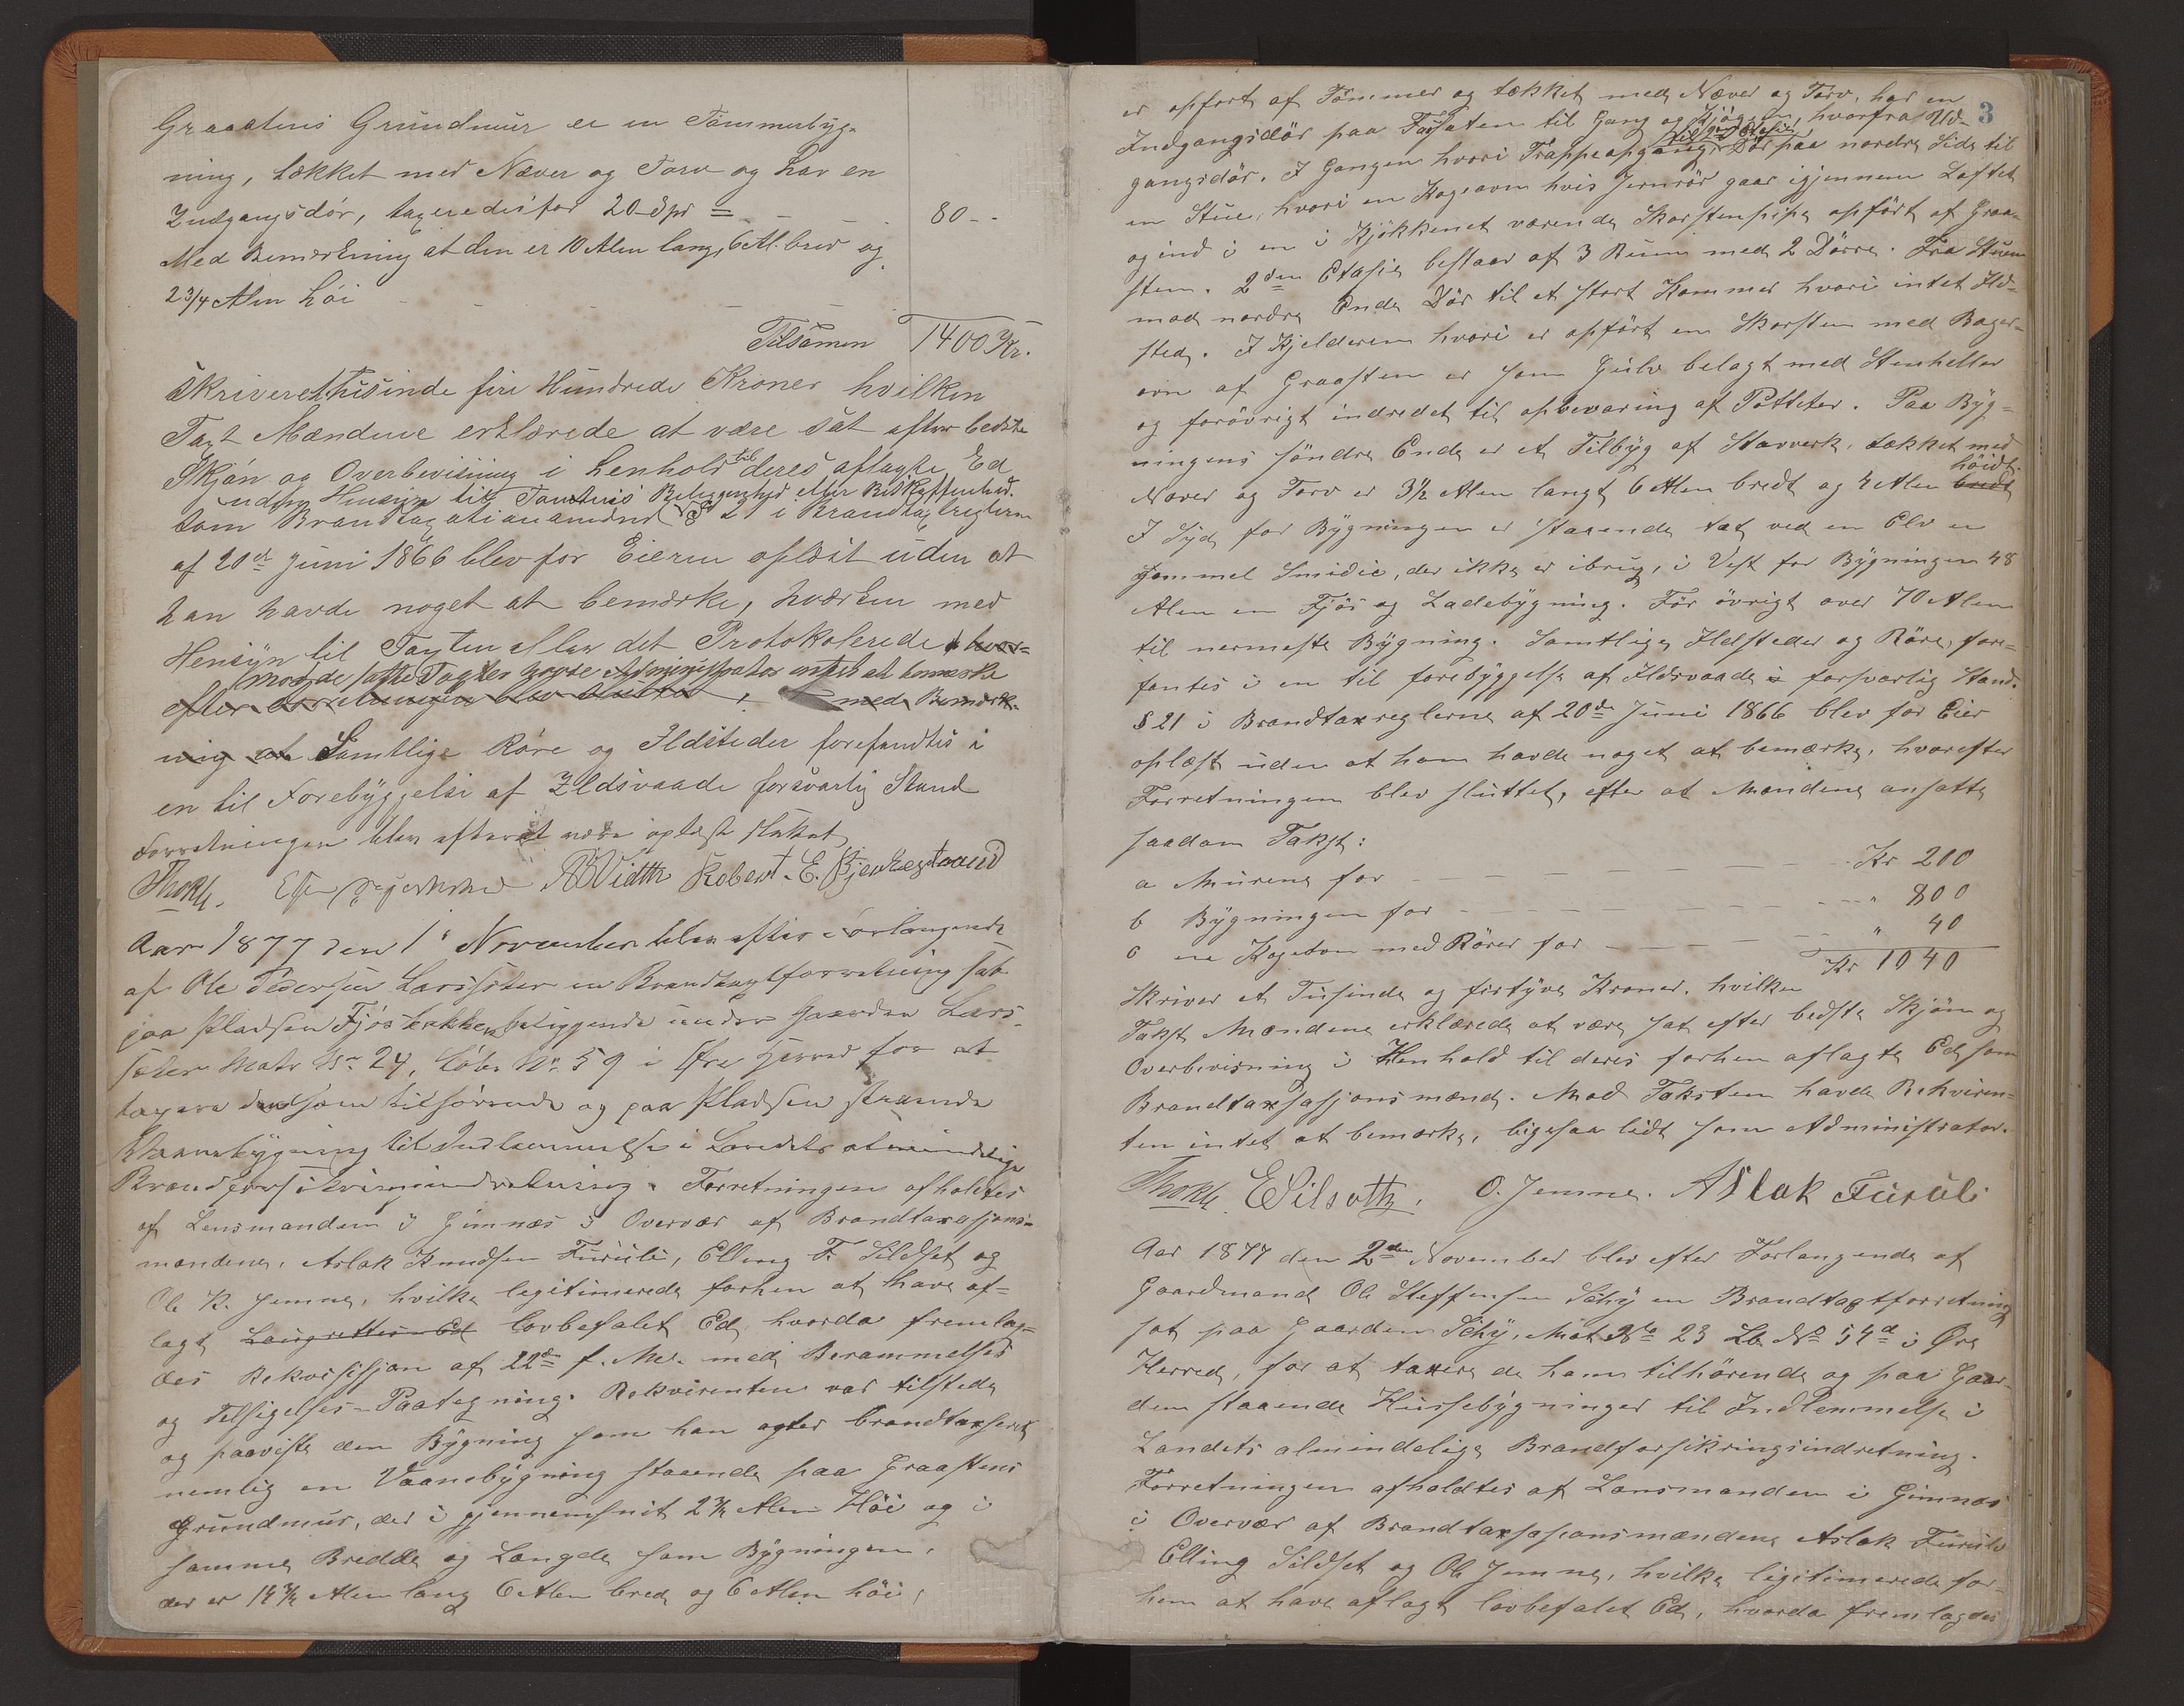 Graastens Grundmur er en Tømmerbyg-
ning, tækket med Næver og Torv og har en
Indgangsdør, taxeredes for 20 Spd = 80 -
Med Bemærkning at den er 10 Alen lang, 6 Al. bred og
2 3/4 Alen høi
Tilsamen 1400 Kr.
Skriver Et tusinde fire Hundrede Kroner hvilken
Taxt Mændene erklærede at være sat efter bedste
Skjøn og Overbevisning i Henhold til deres aflagte Ed
uden Hensyn til Tomtens Beliggenhed eller Beskaffenhed.
som Brandtaxationsmænd § 21 i Brandtaxtreglerne
af 20de Juni 1866 blev for Eieren oplæst uden at
han havde noget at bemærke, hværken med
Hensyn til Taxten eller det Protokolerede hvor-
mod de satte Taxter havde Administrator intet at bemærke
efter Forretningen blev sluttet, med Bemærk-
ning at Samtlige Røre og Ildsteder forefandtes i
en til Forebyggelse af Ildsvaade forsvarlig Stand
Forretningen blev efter at være oplæst sluttet
Thokle. A Vidtth Robert. E. Bjerkestrand
Aar 1877 den 1ste November blev efter Forlangende
af Ole Pedersen Larssæter en Brandtaxtforretning sat
paa Pladsen Fjøsbakken beliggende under Gaarden Lars-
sæter Matr No 24, Løbe No 59 i Øre Herred for at
taxere den ham tilhørende og paa Pladsen staaende
Vaanebygning til Indlemmelse i Landets almindelige
Brandforsikringsindretning. Forretningen afholdtes
af Lensmanden i Gimnæs i Overvær af Brandtaxasjons-
mændene, Aslak Knudsen Furuli, Elling F. Sildset og
Ole K. Jemne, hvilke legitimerede forhen at have af-
lagt Laugrettes-Ed lovbefalet Ed, hvorda fremlag-
des Rekvisisjon af 22de f. Md. med Berammelses
og Tilsigelses-Paategning. Rekvirenten var tilstede
og paaviste den Bygning som han agter brandtaxseret
nemlig en Vaanebygning staaende paa Graastens
Grundmur, der i gjennemsnit 2 1/2 Alen Høi og i
samme Bredde og Længde som Bygningen,
der er 14 1/2 Alen lang 6 Alen bred og 6 Alen høi,
3
er opført af Tømmer og tækket med Næver og Torv, har en
Indgangsdør paa Forsaten til Gang og Kjøkken, hvorfra Ud-
gangsdør. I Gangen hvori Trappeopgang til 2den Etasie Dør paa nordre Side til
en Stue, hvori en Kogeovn hvis Jernrør gaar igjennem Loftet
og ind i en i Kjøkkenet værende Skorstenspipe opført af Graa-
sten. 2den Etasie bestaar af 3 Rum med 2 Dørre. Fra Stuen
mod nordre Ende Dør til et stort Kammer hvori intet Ild-
sted. I Kjelderen hvori er opført en Skorsten med Bager-
ovn af Graasten er som Gulv belagt med Stenheller
og forøvrigt indredet til opbevaring af Potteter. Paa Byg-
ningens søndre Ende er et Tilbyg af Stavverk, tækket med
Næver og Torv er 3 1/2 Alen langt 6 Alen bredt og 4 Alen bredt høidt.
I Syd for Bygningen er staaende tæt ved en Elv en
gammel Smidie, der ikke er ibrug, i Vest for Bygningen 48
Alen en Fjøs og Ladebygning. For øvrigt over 70 Alen
til nermeste Bygning. Samtlige Ildsteder og Røre, fore-
fantes i en til forebyggelse af Ildsvaade i forsvarlig Stand.
§ 21 i Brandtaxreglerne af 20de Juni 1866 blev for Eier
oplæst uden at ham havde noget at bemærke, hvorefter
Forretningen blev sluttet, efter at Mændene ansatte
saadan Takst:
a Murene for Kr 200
b Bygningen for " 800
c en Kogeovn med Rører for " 40
Kr 1040
Skriver et Tusinde og firtyve Kroner, hvilken
Takst Mændene erklærede at være sat efter bedste Skjøn og
Overbevisning i Henhold til deres forhen aflagte Ed som
Brandtaxsasjonsmænd. Mod Taksten havde Rekviren-
ten intet at bemærke, ligesaa lidt som Administrator.
Thokle. E Silsæth. O. Jemne. Aslak Furuli
Aar 1877 den 2den November blev efter Forlangende af
Gaardmand Ole Steffensen Schy en Brandtaxtforretning
sat paa Gaarden Schy, Mat No 23 Lb No 54a i Øre
Herred, for at taxere de ham tilhørende og paa Gaar-
den staaende Hussebygninger til Indlemmelse i
Landets almindelige Brandforsikringsindretning.
Forretningen afholdtes af Lensmanden i Gimnæs
i Overvær af Brandtaxsasjonsmændene Aslak Furuli
Elling Sildset og Ole Jemne, hvilke legitimerede for-
hen at have aflagt lovbefalet Ed, hvorda fremlagdes